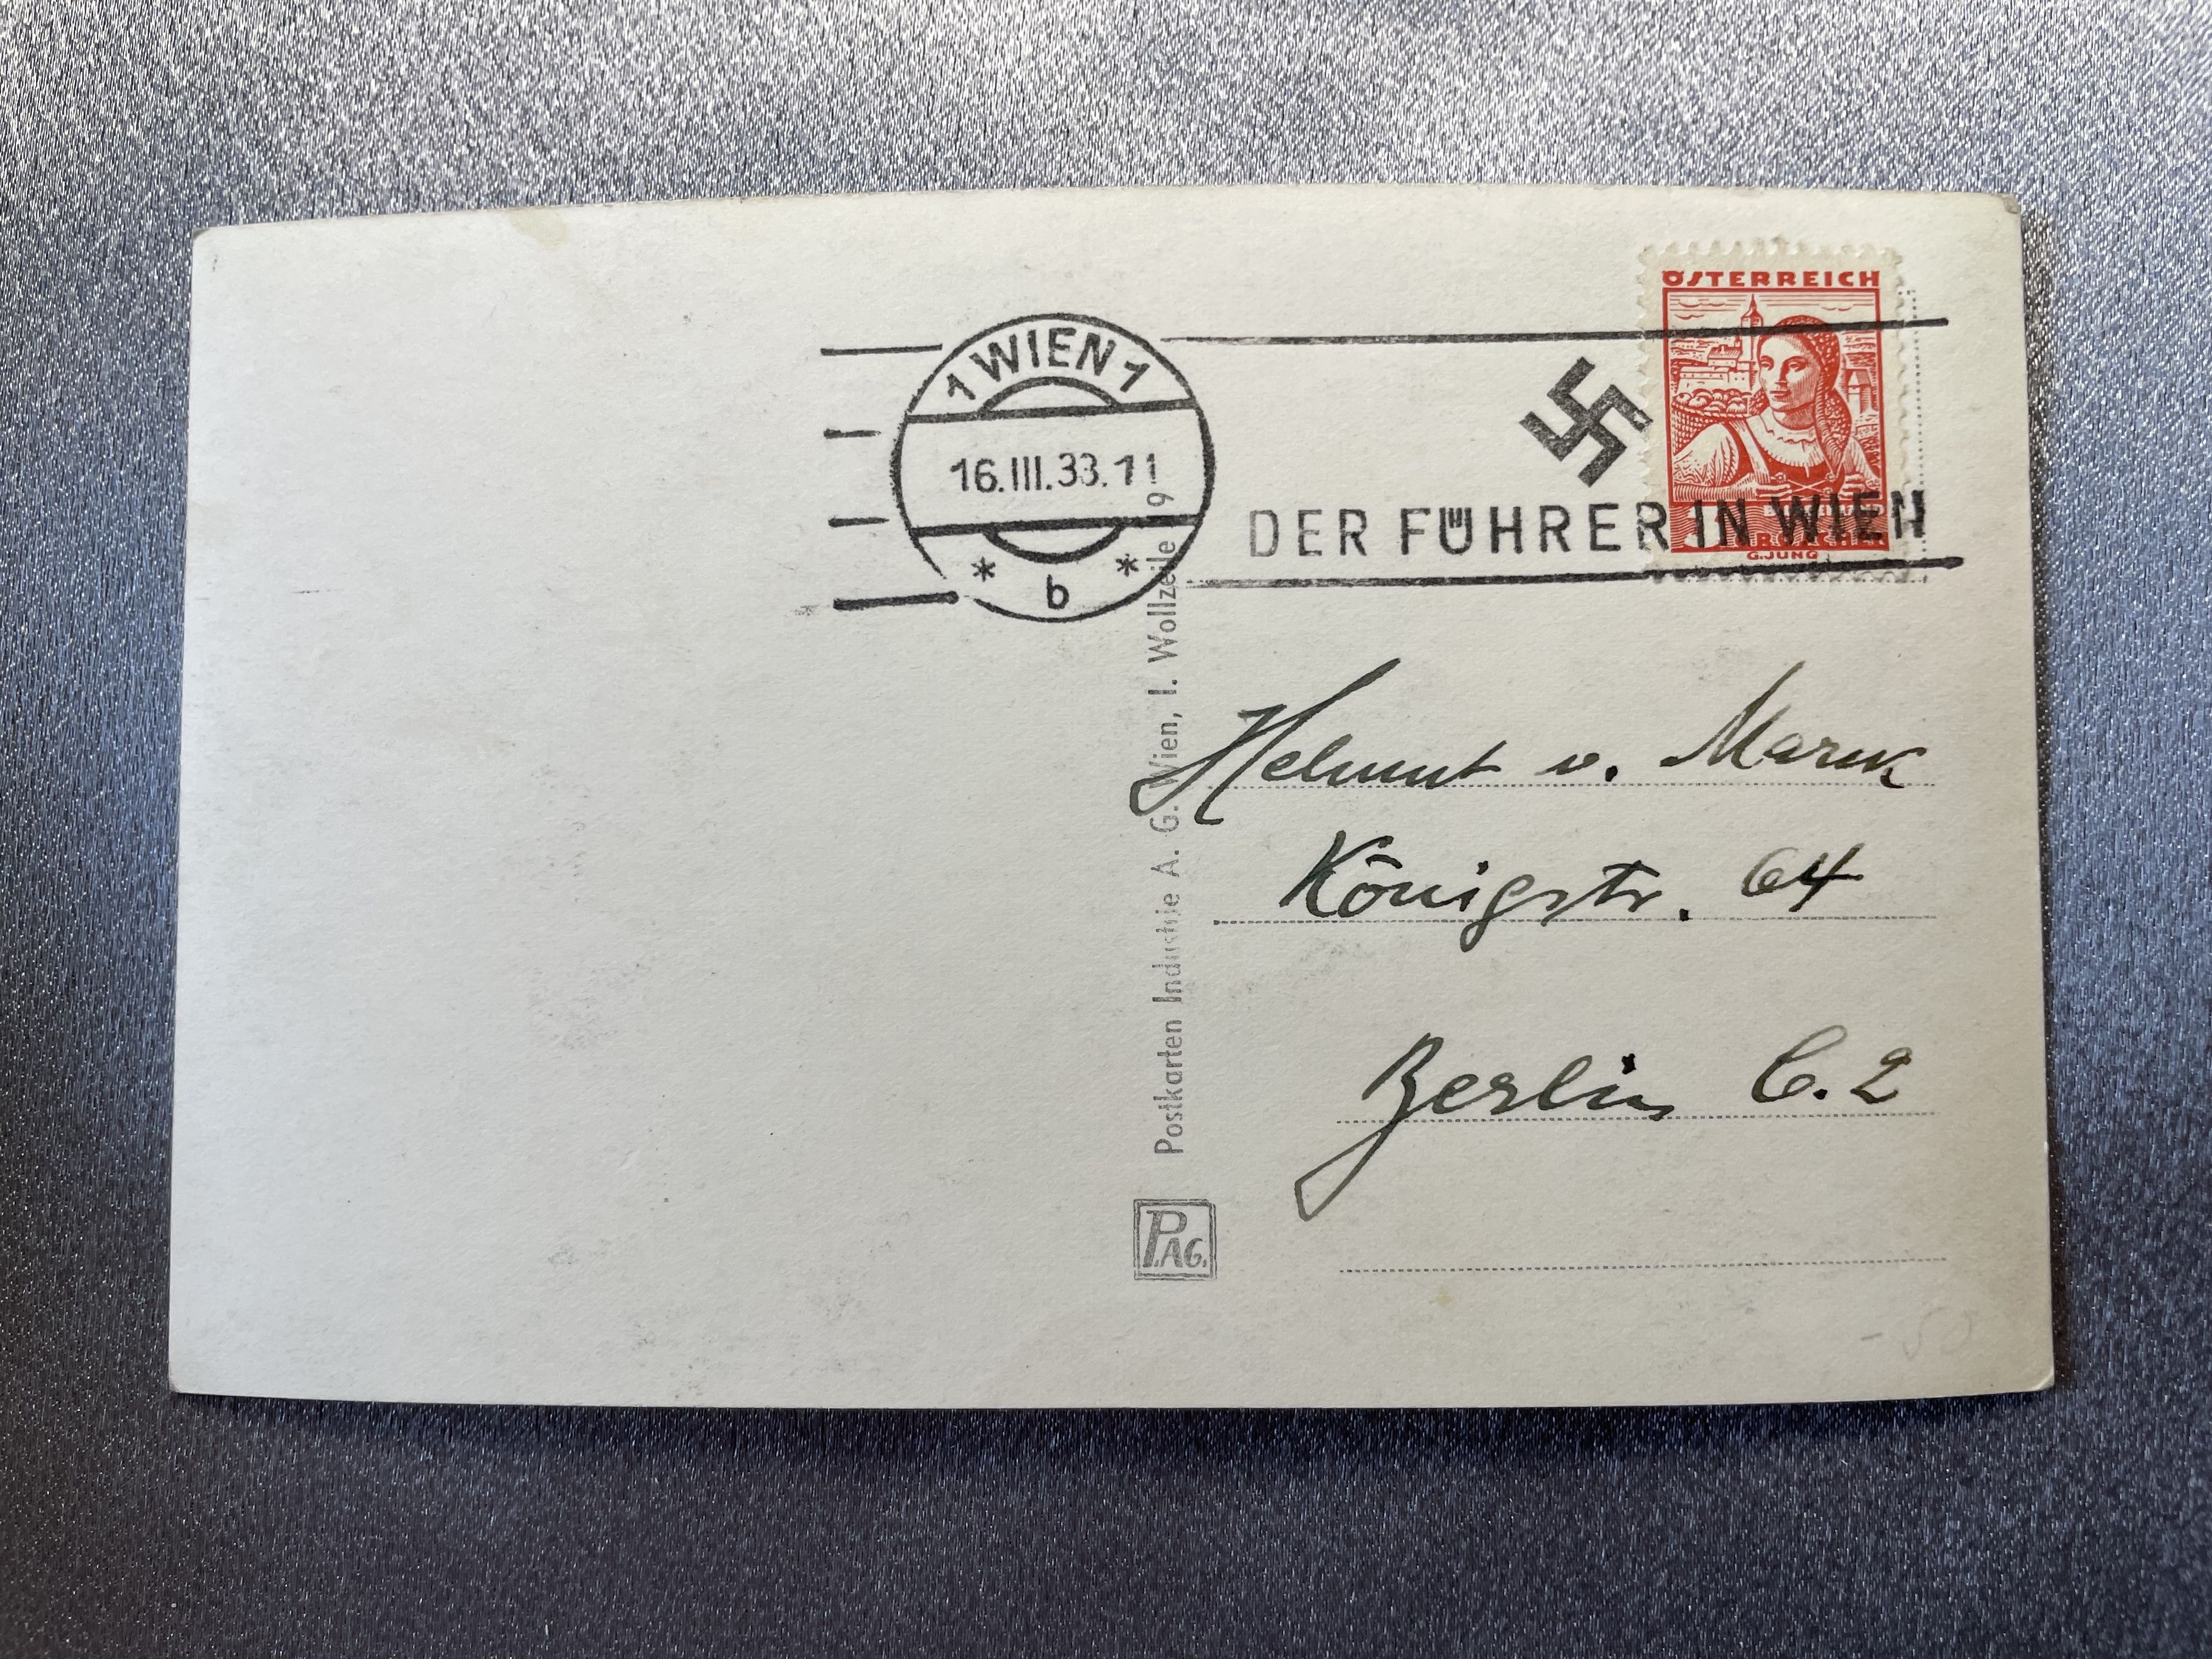 ÖSTERREICH
1 WIEN 1
16.III.38.11
* b *
DER FÜHRER IN WIEN
G.JUNG
Helmut v.
Königstr. 64
Berlin C.2
Postkarten Industrie A. G. Wien, I. Wollzeile 9
P.AG.